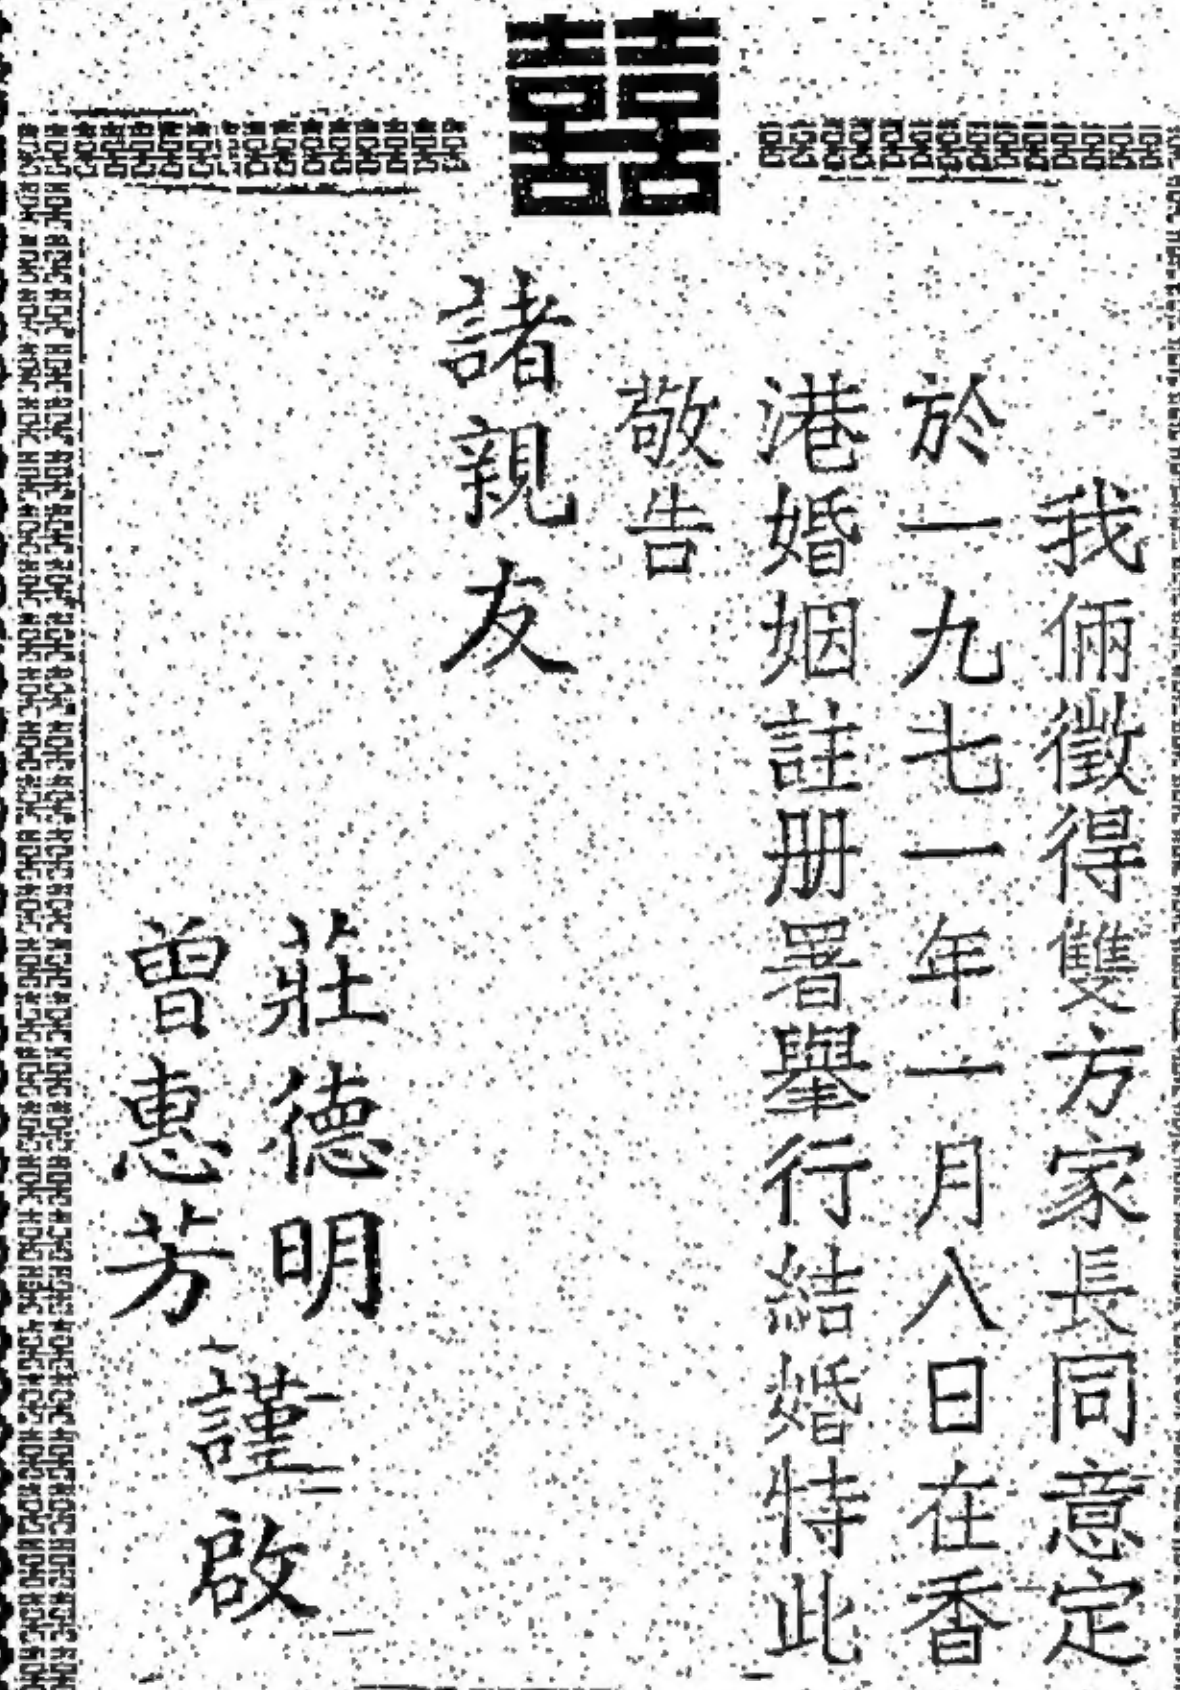 囍
我倆徵得雙方家長同意定
於一九七一年一月八日在香
港婚姻註册署舉行結婚特此
敬告
諸親友
莊德明
曾惠芳
謹啟